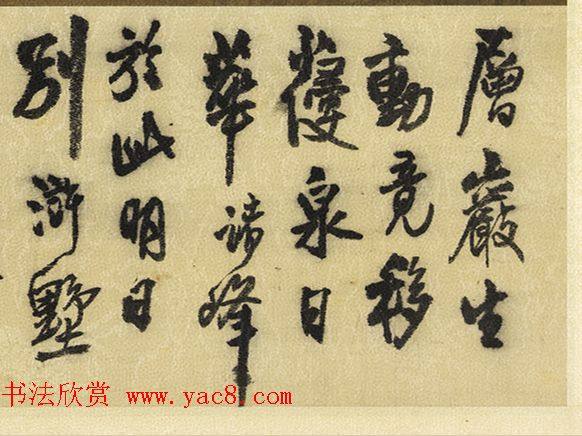 層巖生
動竟移
泉日
華諸峰
於此明日
別滸墅
书法欣赏 www.yac8.com